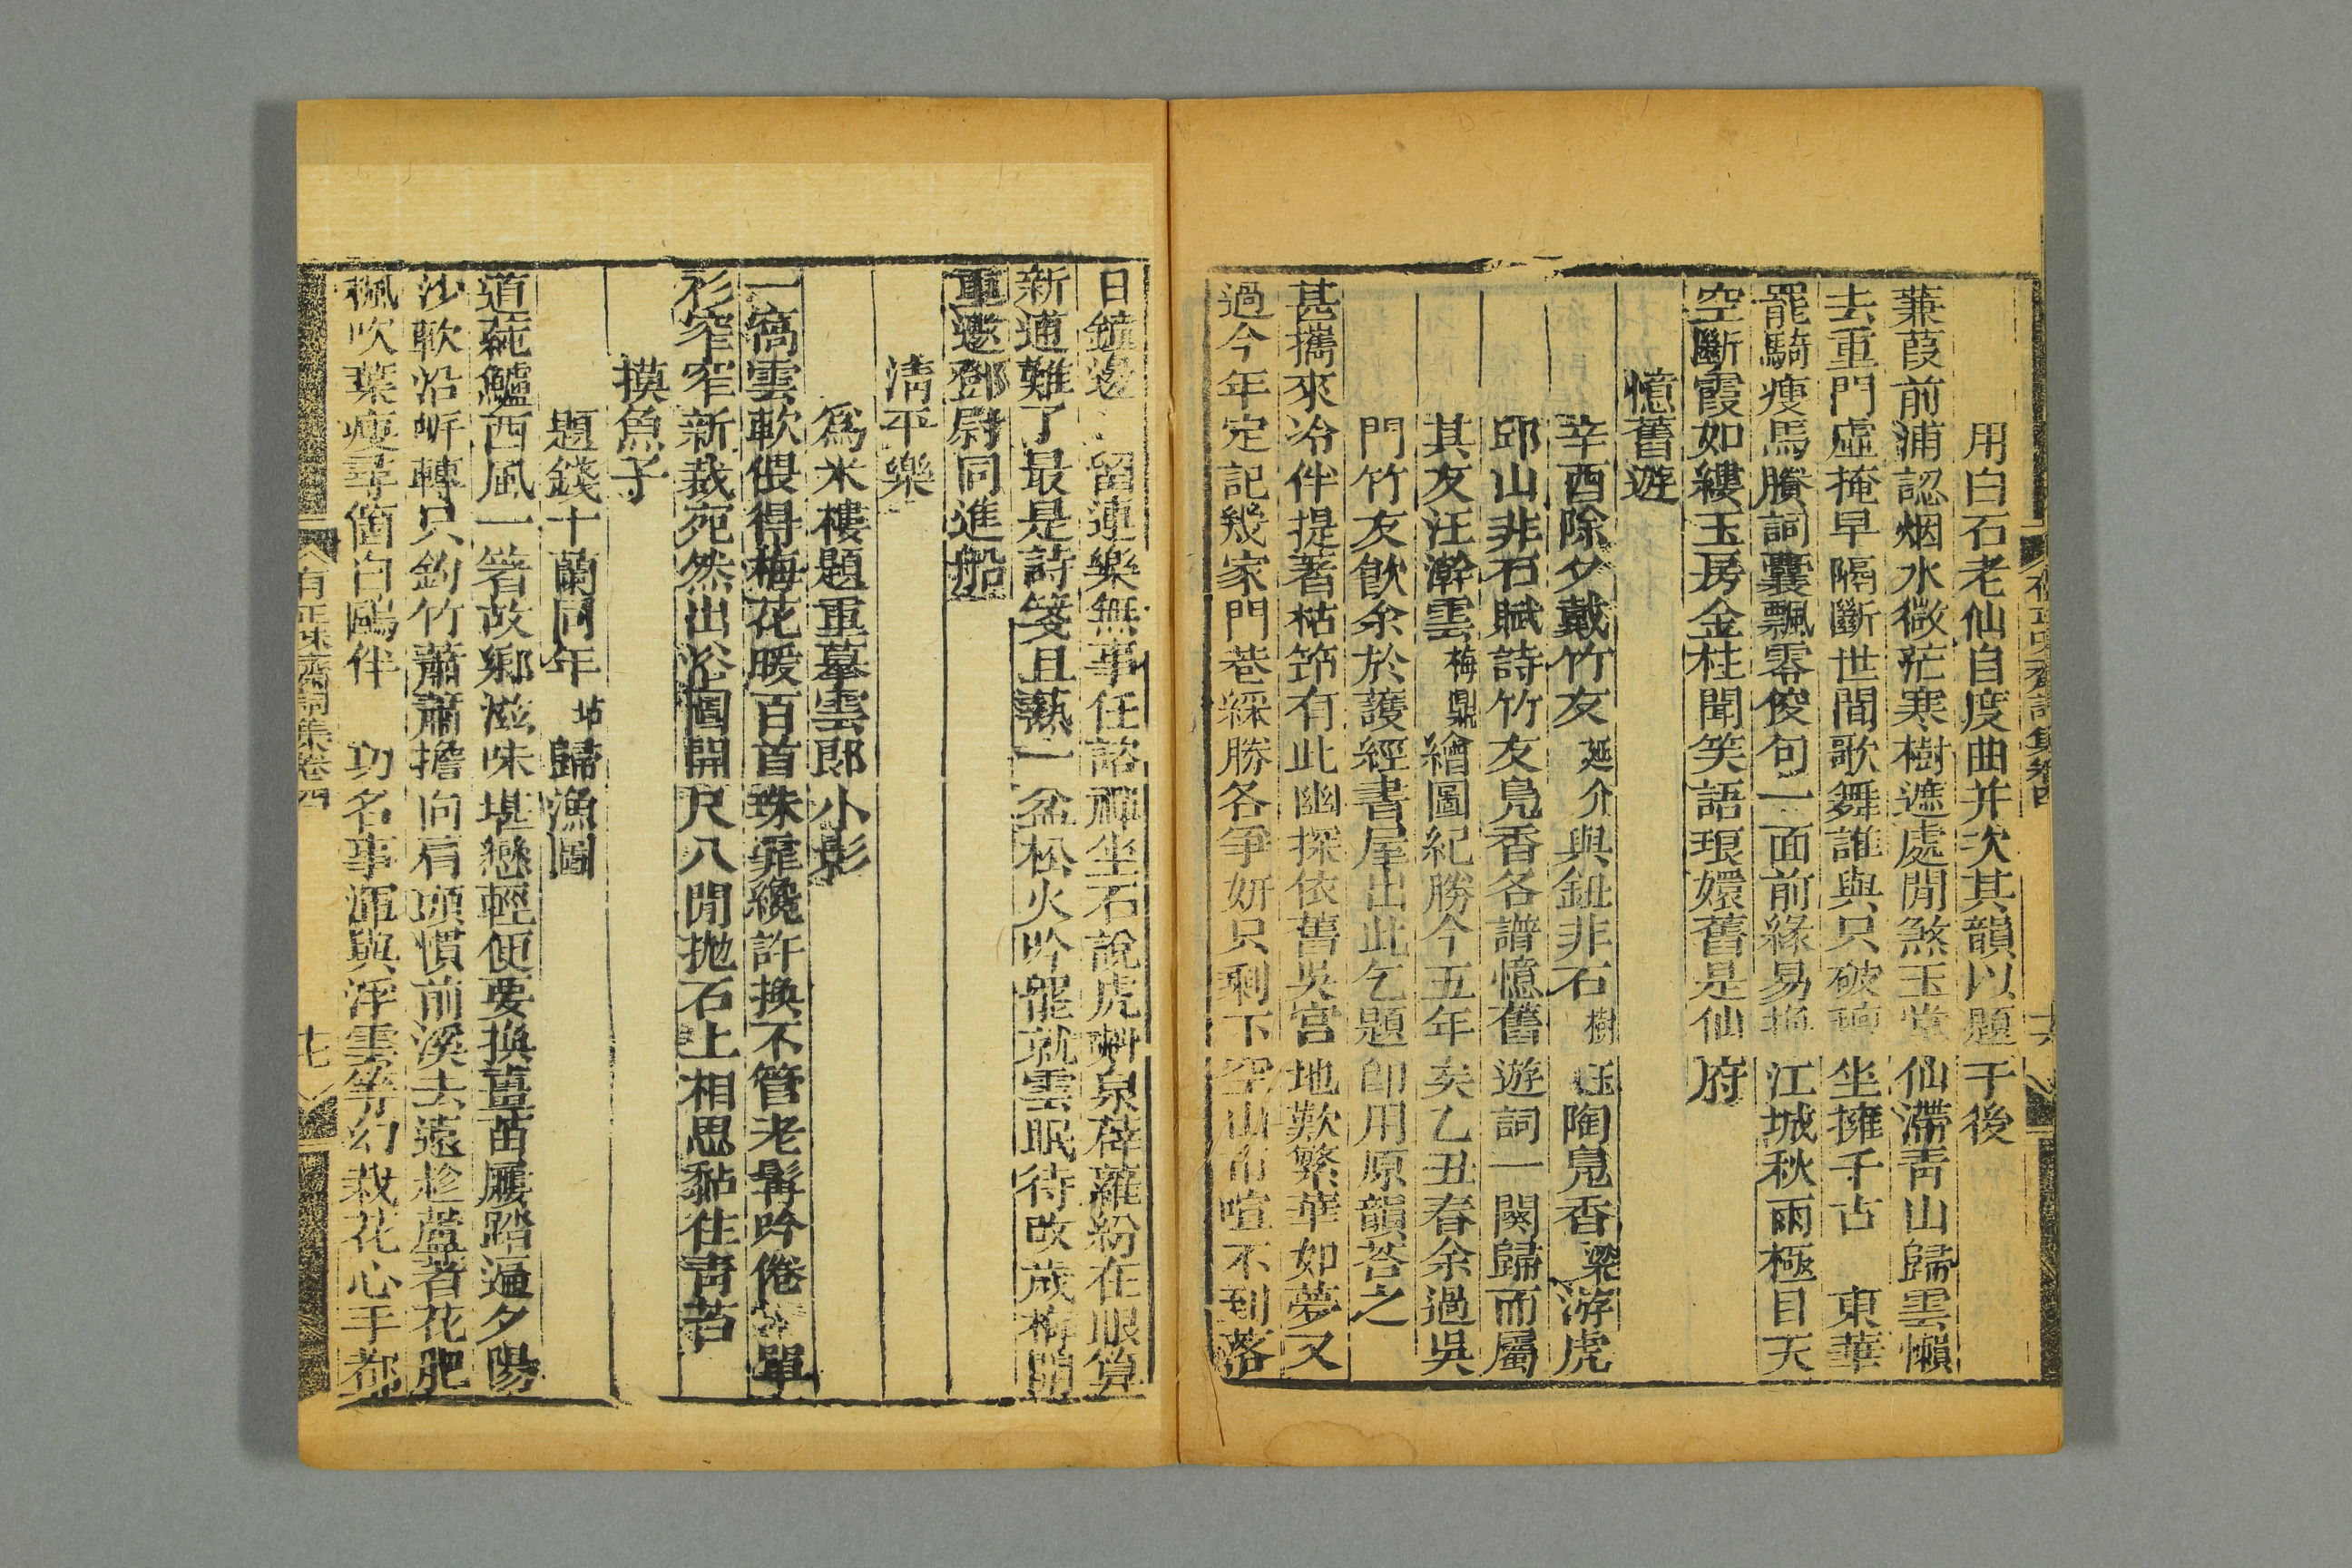 用白石老仙自度曲并次其韻以題于後
蒹葭前浦認烟水微茫寒樹遮處閒煞玉堂仙滯靑山歸雲懶
去重門虛掩早隔斷世間歌舞誰與只破硯坐擁千古 東華
罷騎瘦馬賸詞囊飄零俊句一面前緣易換江城秋雨極目天
空斷霞如縷玉房金柱聞笑語琅嬛舊是仙府
憶舊遊
辛酉除夕戴竹友延介與鈕非石樹玉陶鳧香梁游虎
邱山非石賦詩竹友鳧香各譜憶舊遊詞一闋歸而屬
其友汪澣雲梅鼎繪圖紀勝今五年矣乙丑春余過吳
門竹友飮余於護經書屋出此乞題卽用原韻荅之
甚攜來冷伴提著枯笻有此幽探依舊吳宮地歎繁華如夢又
過今年定記幾家門巷綵勝各爭姸只剩下空山市喧不到落
日鐘邊 留連樂無事任諮禪坐石說虎斟泉薜蘿紛在眼算
新逋難了最是詩箋且爇一盆松火吟罷就雲眠待改歲梅開
重邀鄧尉同進船
淸平樂
爲米樓題重摹雲郞小影
一窩雲軟偎得梅花暖百首珠霏纔許換不管老髯吟倦 單
衫窄窄新裁宛然出浴圖開尺八閒抛石上相思黏住靑苔
摸魚子
題錢十蘭同年坫歸漁圖
道蒓鱸西風一箸故鄕滋味堪戀輕便要換薑苗屨踏遍夕陽
沙軟沿岍轉只釣竹蕭蕭擔向肩頭慣前溪去遠趁蘆著花肥
楓吹葉瘦尋箇白鷗伴 功名事渾與浮雲等幻栽花心手都
有正味齋詞集卷四
七